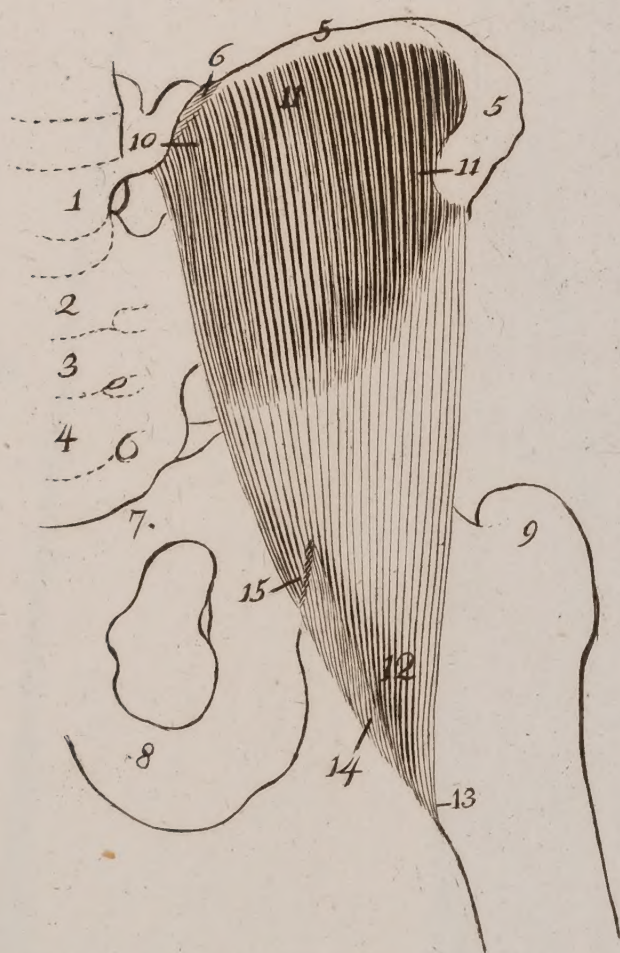 5
6
11
5
10
11
1
2
3
4
7.
9
15
12
8
14
13